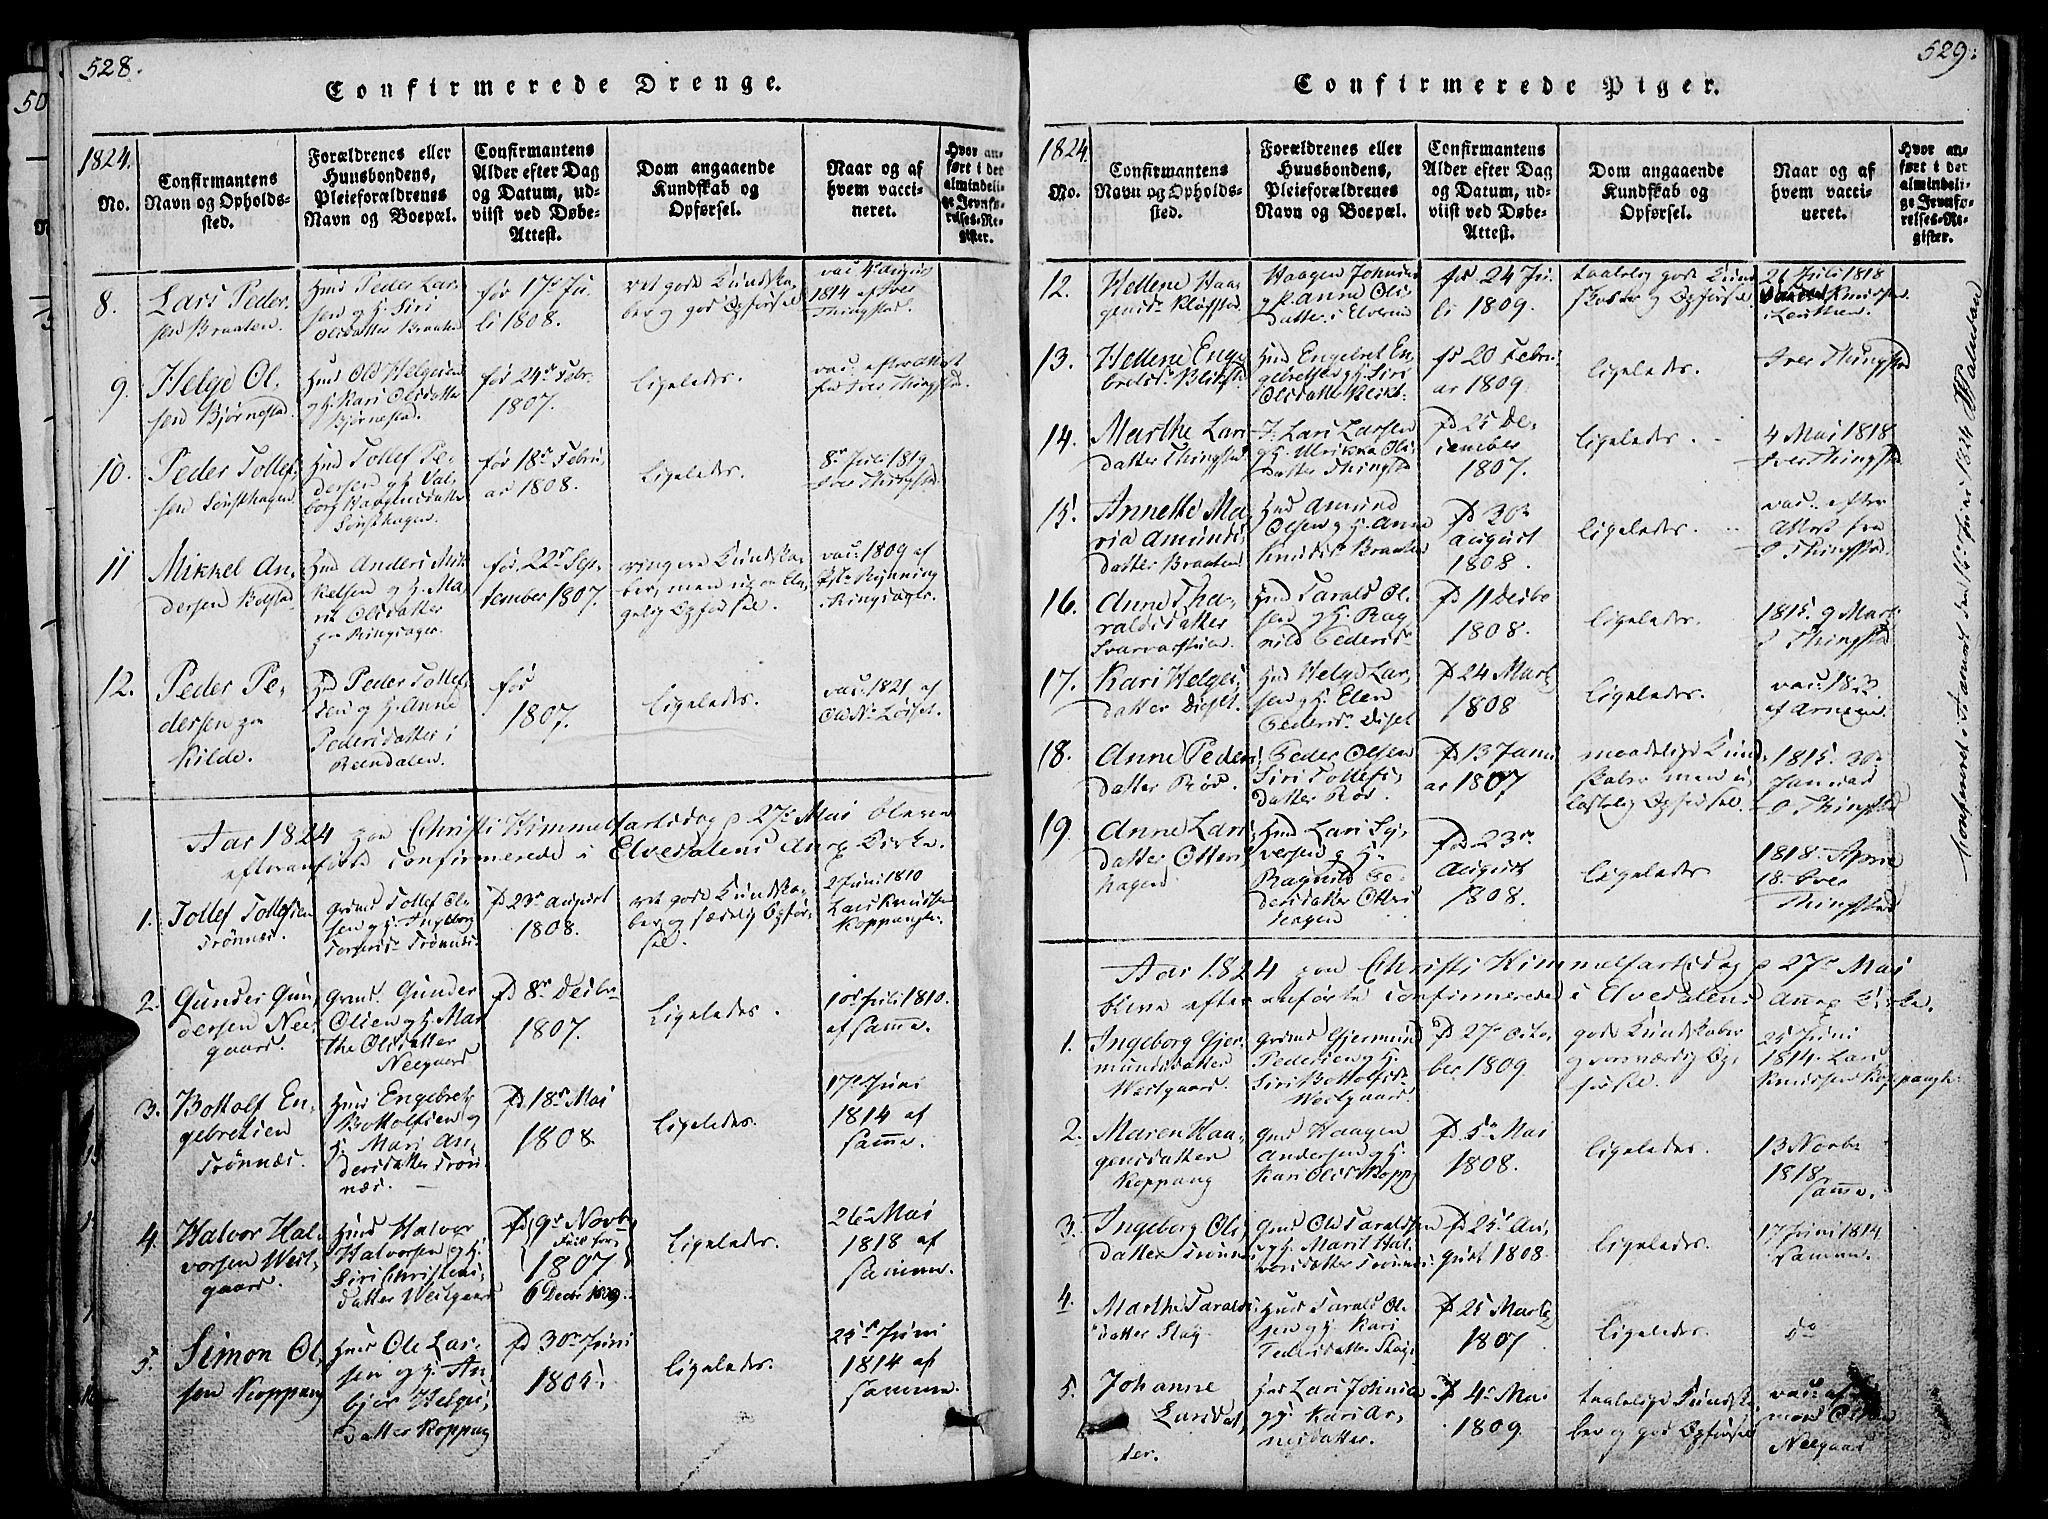 528.
Confirmerede Drenge.
1824.
No.
Confirmantens
Navn og Opholds-
sted.
Forældrenes eller
Huusbondens,
Pleieforældrenes
Navn og Boepæl.
Confirmantens
Alder efter Dag
og Datum, ud-
viist ved Døbe-
Attest.
Dom angaaende
Kundskab og
Opførsel.
Naar og af
hvem vacci-
neret.
Hvor an-
ført i det
almindeli-
ge Jevnfø-
relses-Re-
gister.
8.
Lars Peder-
sen Braaten.
Huus Peder Lar-
sen og H. Siri
Olesdatter Braaten
før 17de Ju-
li 1808.
ret gode Kundska-
ber og god Opførsel
vac. 4de August
1814 af Iver
Thingstad.
9.
Helge Ol-
sen Bjørnestad.
Huus Ole Helgesen
og H. Kari Olesdatter
Bjørnestad.
før 24de Febr.
1807.
ligeledes.
vac. efter Attest
fra Iver Thingstad.
10.
Peder Tollef-
sen
Huus Tollef Pe-
dersen og H. Val-
borg Haagensdatter
før 18de Febru-
ar 1808.
ligeledes.
8de Juli 1819
Iver Thingstad.
11
Mikkel An-
dersen Bolstad
Huus Anders Mik-
kelsen og H. Ma-
rit Olesdatter
paa Ringsager.
før 22de Sep-
tember 1807.
ringere Kundska-
ber, men
Opførsel.
vac. 1809 af
Ringsager.
12.
Peder Pe-
dersen paa
Kilde.
Hd Peder Tollef-
sen og H. Anne
Pedersdatter i
Reendalen.
før
1807.
ligeledes.
vac. 1821 af
Aar 1824 paa Christi Himmelfartsdag d 27de Mai bleve
efteranførte confirmerede i Elvedalens Anex Kirke.
1.
Tollef Tollefsen
Trønnæs.
Grmd Tollef Ol-
sen og H. Ingeborg
Trønnæs.
Fd 23de August
1808.
ret gode Kundska-
ber og sædelig Opfør-
sel.
2 Juni 1810
Lars Knudsen
Koppang.
2.
Gunder Gun-
dersen Nee-
gaard.
Grmd. Gunder
Olsen og H. Mar-
the Olsdatter
Neegaard
Fd 8de Decbr.
1807.
ligeledes.
10de Juli 1810.
af samme.
3.
Bottolf En-
gebretsen
Trønnæs.
Huus Engebret
Bottolfsen og
H. Mari An-
dersdatter Trøn-
næs.
Fd. 18de Mai
1808.
ligeledes.
17de Juni
1814 af
samme.
4.
Halvor Hal-
vorsen West-
gaard.
Huus Halvor
Halvorsen og H.
Siri Christens-
datter Westgaard
Fd 9de Novbr.
1807
6 Decbr 1809.
ligeledes.
26de Mai
1818 af
samme.
5.
Simon Ol-
sen Koppang
Huus Ole Lar-
sen og H. An-
bjør Helges-
datter Koppang
Fd 30de Juni
1805.
ligeledes.
25de Juni
1814 af
samme.
529.
Confirmerede Piger.
1824
No.
Confirmantens
Navn og Opholds-
sted.
Forældrenes eller
Huusbondens,
Pleieforældrenes
Navn og Boepæl.
Confirmantens
Alder efter Dag
og Datum, ud-
viist ved Døbe-
Attest.
Dom angaaende
Kundskab og
Opførsel.
Naar og af
hvem vacci-
neret.
Hvor an-
ført i det
almindeli-
ge Jevnfø-
relses-Re-
gister.
12.
Hellene Haa-
gensdr Kløfstad
Haagen Johnsen
og K. Anne Ols-
datter i Elverum
fød 24 Ju-
li 1809.
taalelig gode Kund-
skaber og Opførsel
21 Juli 1818
Knudsen
13.
Hellene Enge-
bretsdr
Huus Engebret En-
gebretsen og H. Siri
Olsdatter
fd 20 Febru-
ar 1809.
ligeledes.
Iver Thingstad
14.
Marthe Lars-
datter Thingstad
Lars Larsen
og H. Ulrikka Ols-
datter Thingstad
Fd 25 De-
cember
1807.
ligeledes.
4 Mai 1818
Iver Thingstad
15.
Annette Ma-
ria Amunds-
datter Braaten
Huus Amund
Olsen og H. Anne
Knudsdr Braaten
Fd 30de
August
1808.
ligeledes.
vac. efter
Attest fra
I Thingstad.
16.
Anne Tha-
raldsdatter
Huus Tarald Ol-
sen og H. Rag-
nild Pedersdr
Fd 11 Decbr
1808.
ligeledes.
1815. 9 Mart.
I Thingstad
17.
Kari Helges-
datter Diset.
Huus Helge Lar-
sen og H. Elen
Pedersdr Diset
Fd 24 Marts
1808
ligeledes.
af Arnesen.
18.
Anne Peders-
datter Røs.
Peder Olsen
Siri Tollefs-
datter Røs.
Fd 13 Janu-
ar 1807
maadelige Kund-
skaber men u-
lastelig Opførsel.
1815. 30de
Januar
I Thingstad
19.
Anne Lars-
datter Otters-
hagen
Huus Lars Sy-
versen og H.
Ragnild Pe-
dersdatter Otters-
hagen
Fød 23de
August
1808.
ligeledes
1818. April
18. Iver
Thingstad
Aar 1824 paa Christi Himmelfartsdag d 27de Mai
bleve efter anførte confirmerede i Elvedalens Anex Kirke.
1.
Ingeborg Gjer-
mundsdatter
Westgaard.
Grmd Gjermund
Pedersen og H.
Siri Bottolfsdr
Westgaard.
Fd 27de Octo-
ber 1809.
gode Kundskaber
og
25 Juni
1814. Lars
Knudsen Koppang.
2.
Maren Haa-
gensdatter
Koppang
Grmd Haagen
Andersen og H.
Kari Olsdr Kopp.
Fd 5te Mai
1808.
ligeledes.
13 Novbr
1818
samme.
3.
Ingeborg Ols-
datter Trønnæs
Grmd Ole Taraldsen
og H. Marit Hal-
vorsdatter Trønnæs
Fd 25de Au-
gust 1808.
ligeledes.
17 Juni 1814.
samme.
4.
Marthe Taralds-
datter Stai
Huus Tarald Ol-
sen og H. Kari
Pedersdatter Stai
Fd 25 Marts
1807.
ligeledes.
do
5.
Johanne
Larsdat-
ter.
Huus Lars Johnsen
og H. Kari Ar-
nesdatter.
Fd 4de Mai
1809.
taalelige Kundska-
ber og god Opførsel
vac. af
Olsen
Neegaard